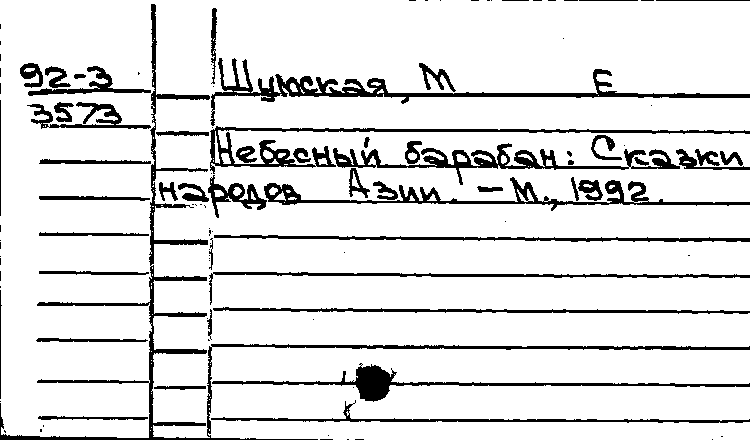 92-3 Шумская, М Е
3573
Небесный барабан: Сказки
народов Азии. — М., 1992.